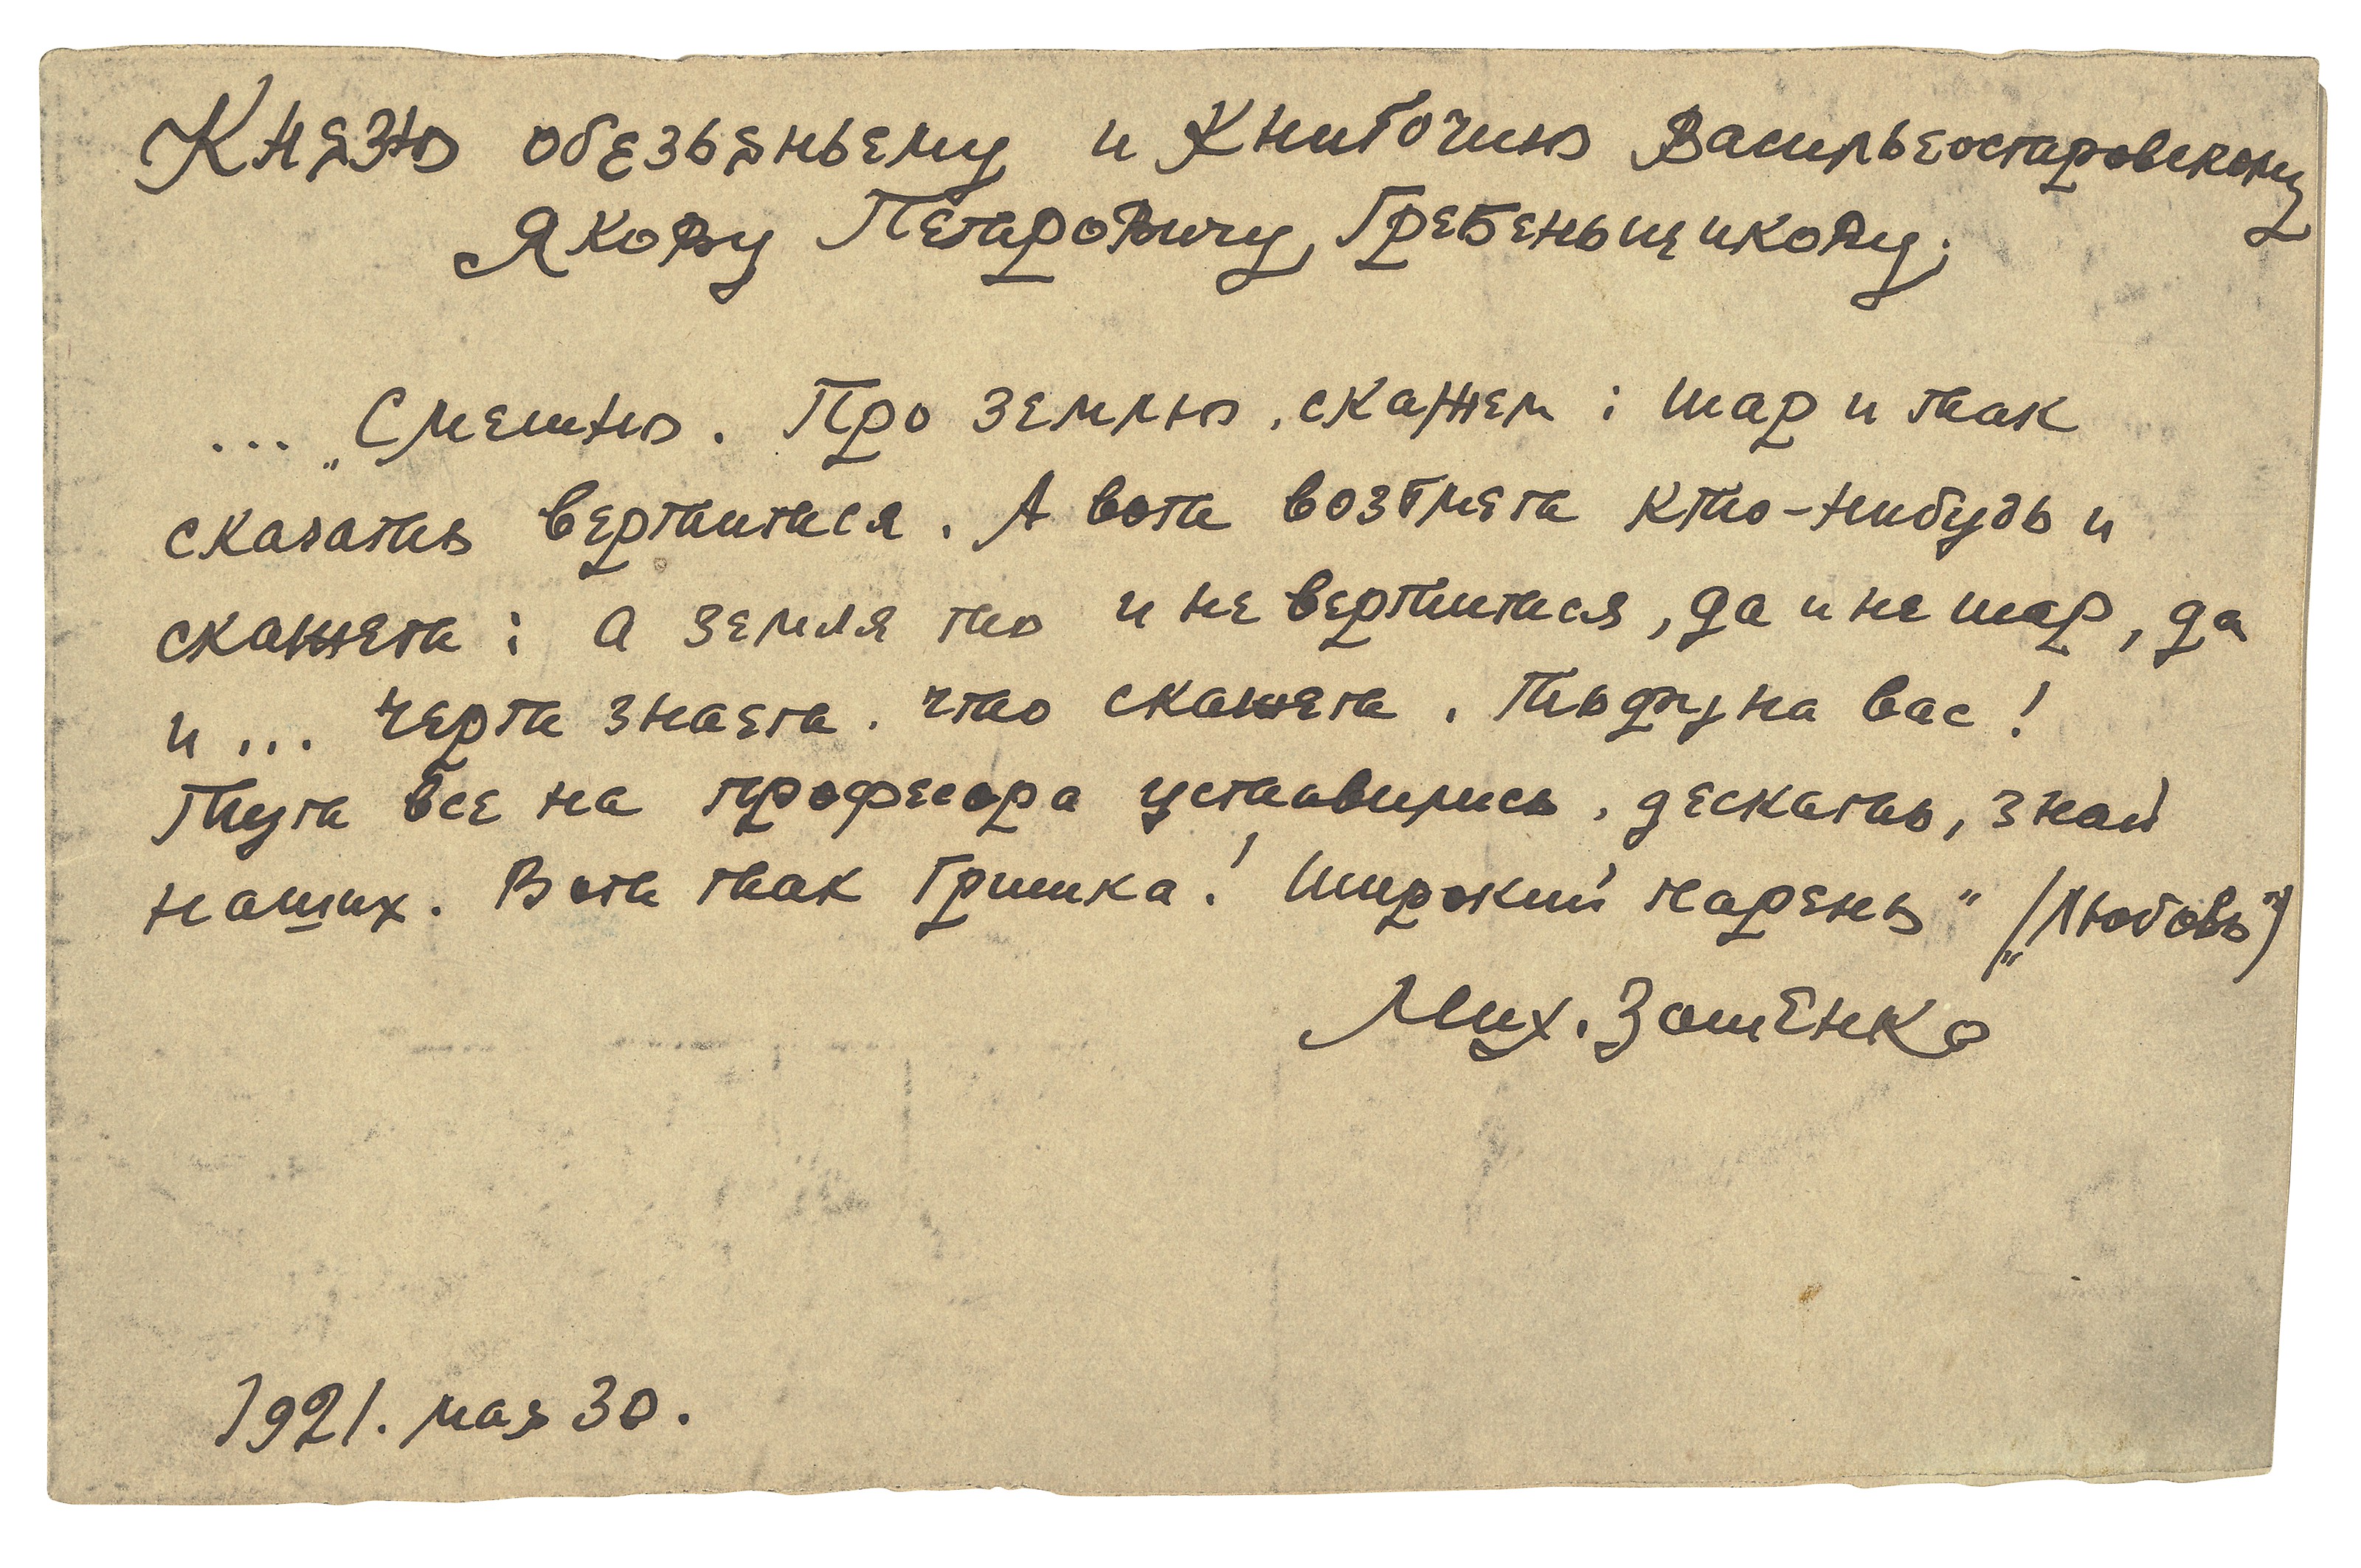 Князю обезьяньему и Книгочию Васильеостровскому
Якову Петровичу Гребенщикову.
... „Смешно. Про землю, скажем: шар и так
сказать вертится. А вот возьмет кто-нибудь и
скажет: а земля то и не вертится, да и не шар, да
и ... черт знает. что скажет. Тьфу на вас!
Тут все на професора уставились, дескать, знай
наших. Вот так Гришка! Широкий парень" („Любовь")
Мих. Зощенко
1921. мая 30.